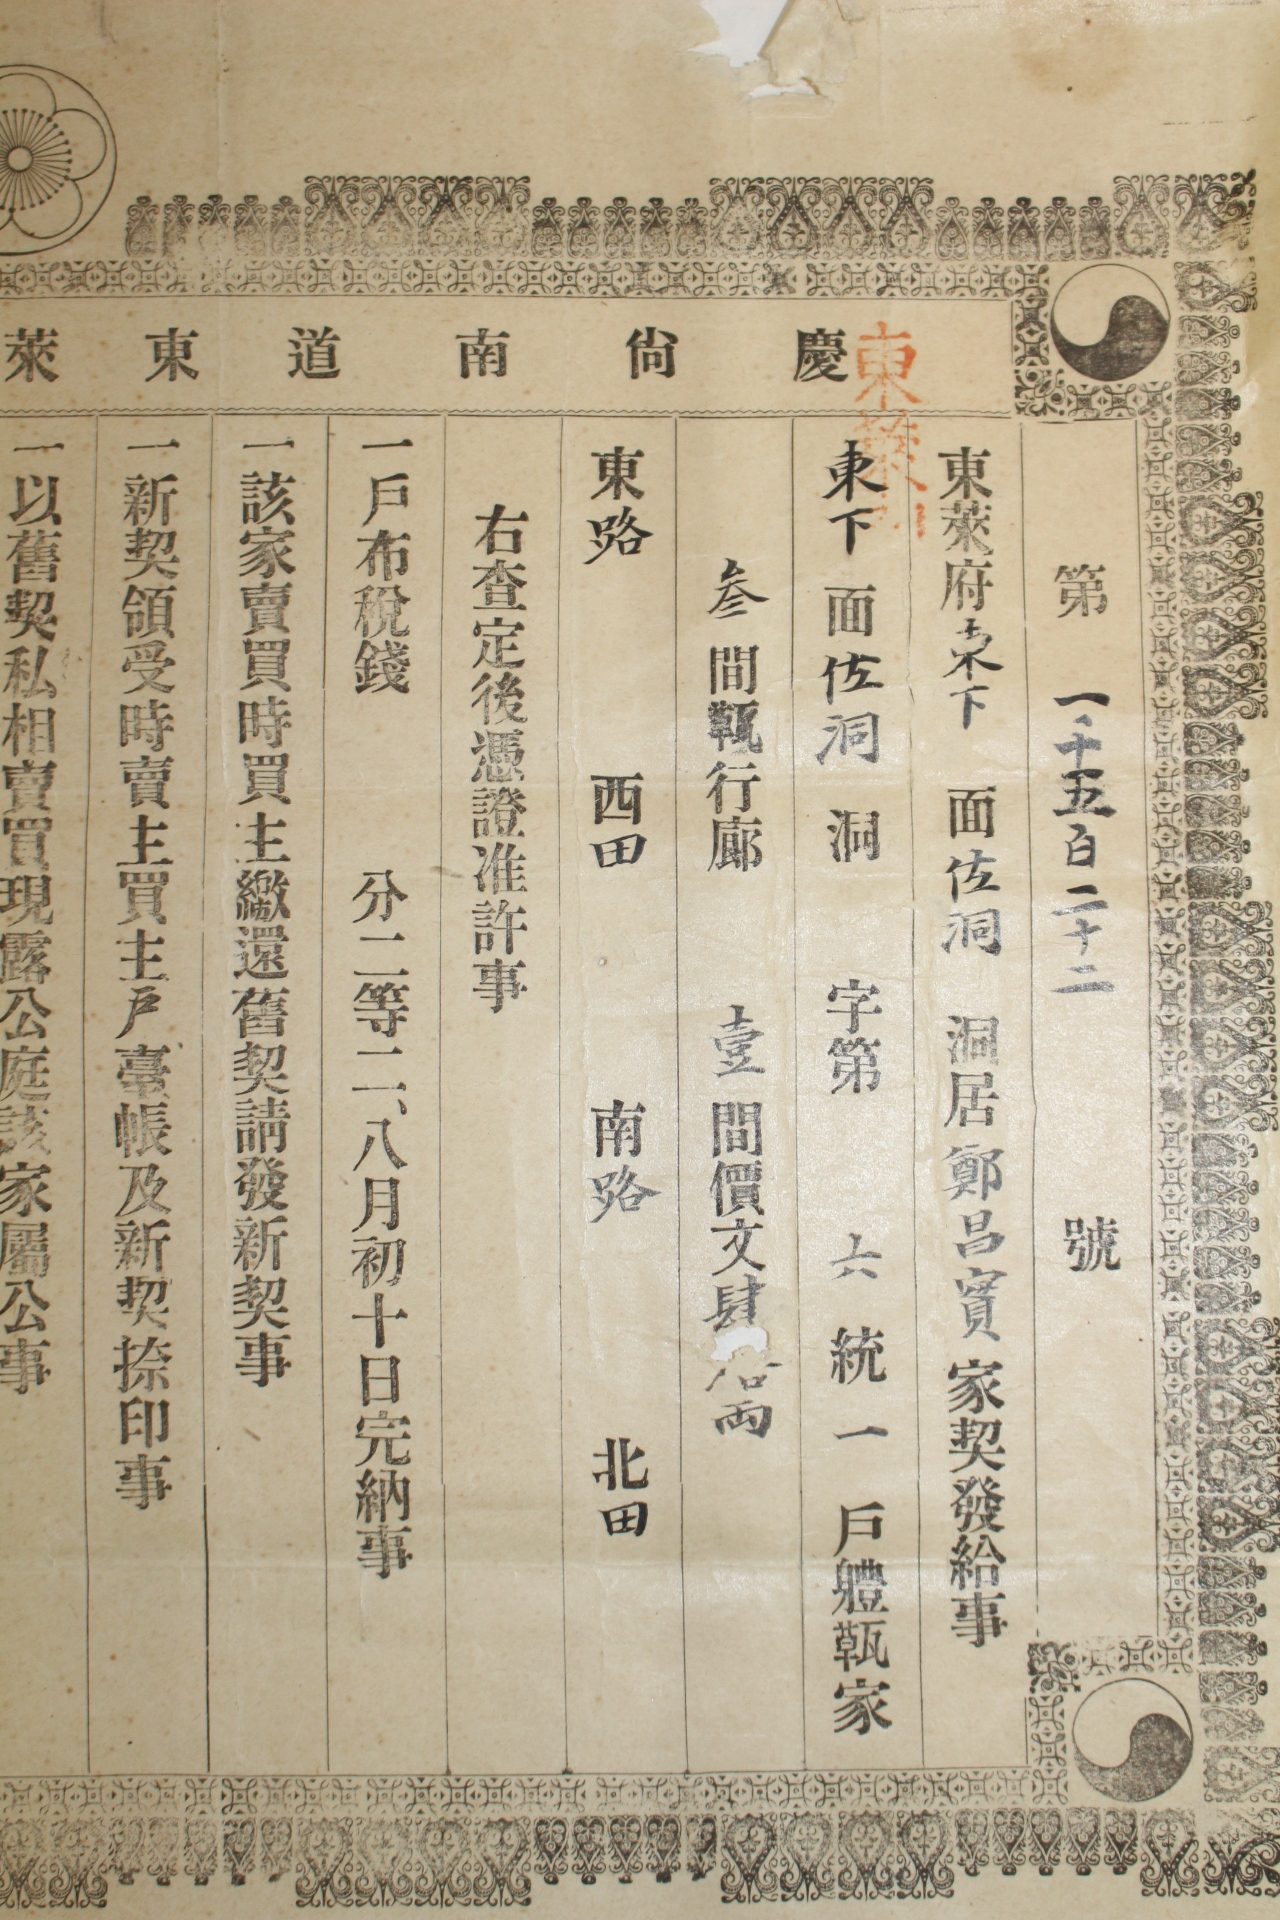 慶尙南道東萊
東萊
第一千五百二十二號
東萊府東下面佐洞洞居鄭昌實家契發給事
東下面佐洞洞字第六統一戶體瓾家
參間瓾行廊壹間價文肆兩
東路西田南路北田
右查定後憑證准許事
一戶布稅錢分二等二、八月初十日完納事
一該家賣買時買主繳還舊契請發新契事
一新契領受時賣主買主戶臺帳及新契捺印事
一以舊契私相賣買現露公庭該家屬公事